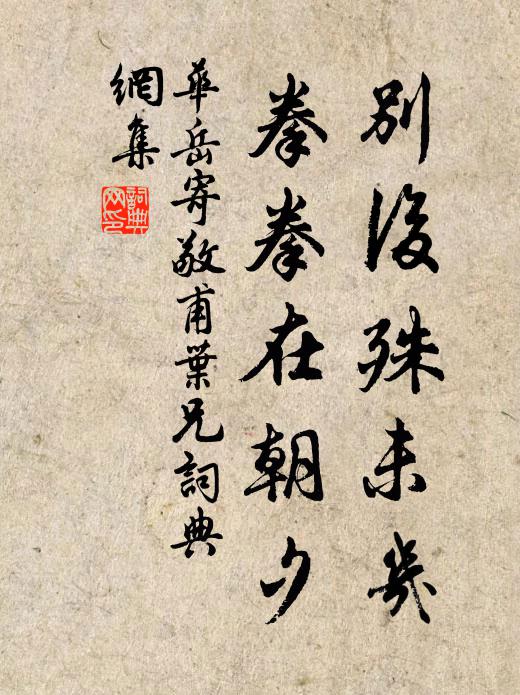 別後殊未幾
拳拳在朝夕
華岳寄敬甫葉兄詞典
網集
詞典
网印